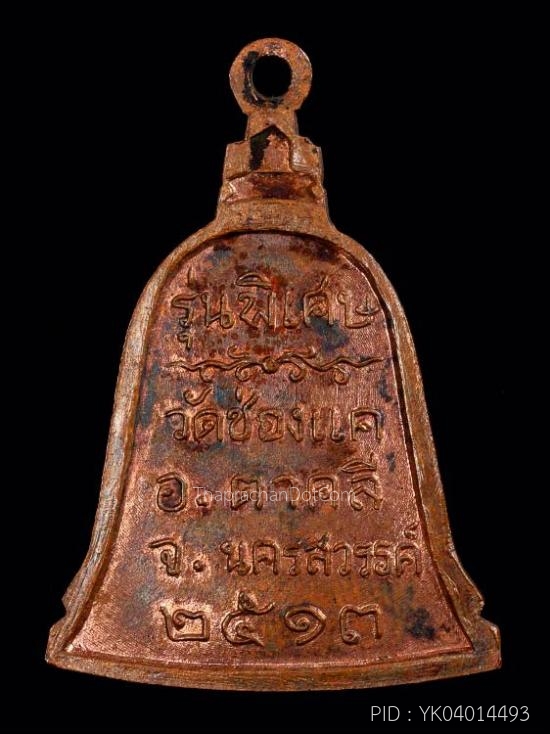 รุ่นพิเศษ
วัดช่องแค
อ. ตาคลี
ThaprachanDotcom
จ. นครสวรรค์
๒๕๑๓
PID : YK04014493